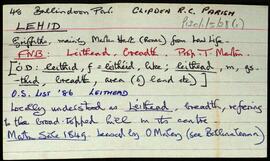 48 Ballindoon Par. CLIFDEN R.C. PARISH
LEHID
Griffith, mainly Martin Hart (Ross) from Law Life.
FNB: Leithead, Breadth. Prop. T. Martin.
[O.D. leithid, f = leithead, like; leithead, m, gs.
-thid, breadth, area (of land etc)]
O.S. List '86 LEITHEAD
Locally understood as Leithead, breadth, referring
to the broad-topped hill in the centre
Martin Sale 1849. Leased by O'Malley (see Ballinaleama)